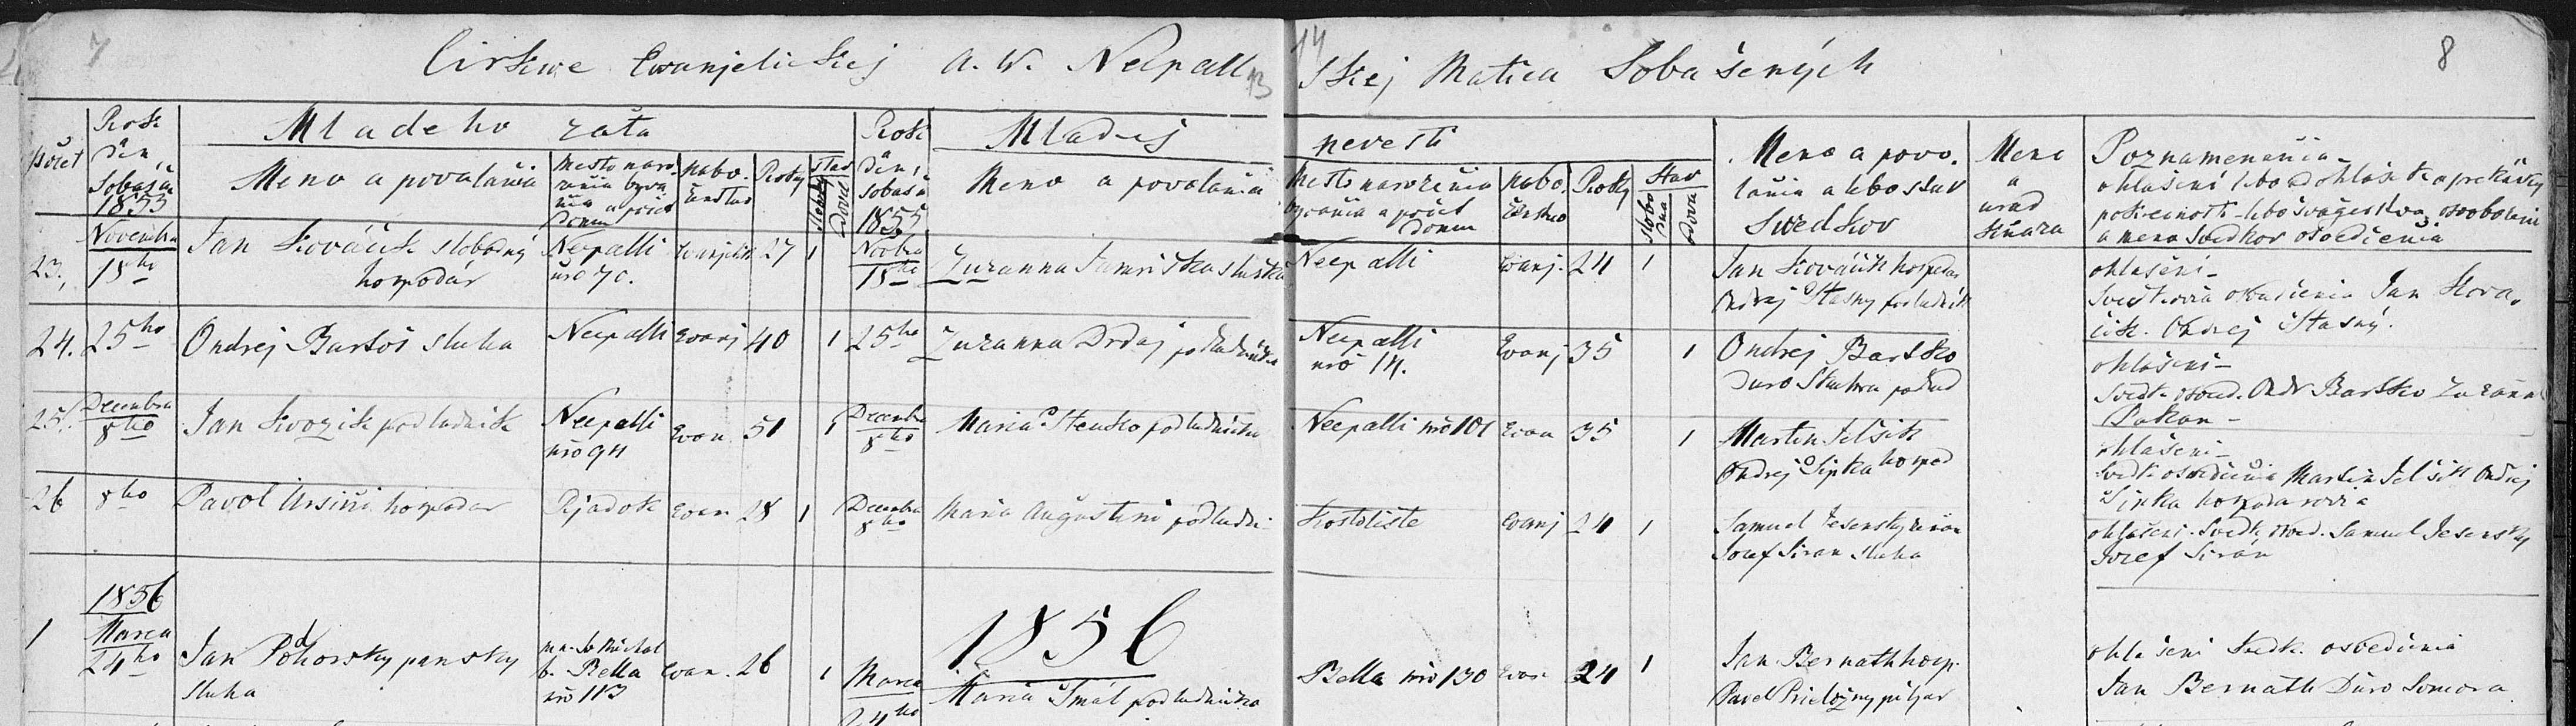 7
14
8
Cirkwe Ewanjelickej A. W. Necpall
13
skej Matica Sobašených
počet
Rok
děn,
Sobáša
1855
Mladeho zaťa
Meno a povolaňia
Mesto naro
zeňia byva
ňia a počet
Domu
nabo-
ženstvo
Roky
stav
Slobodny
Dovec
Rok
děn,
Sobaša
1855
Mladej
Meno a povolaňia
nevesti
Mesto narozeňia
byvaňia a počet
Domu
nabo
ženstvo
Roky
Stav
Slobo
dna
Dova
Meno a povo-
laňia alebo stav
Svedkov
Meno
a
urad
Kňaza
Poznamenaňia-
ohlašeni lebo od ohlašek a prekažky
pokrevnosti lebo švagerstva, osvobozeni
a mena Svedkov osvedčeňia
23.
Novembra
18ho
Jan Kováčik slobodný
hospodár
Necpalli
nro 70.
Ewanjelik
27
1
Novbra
18ho
Zuzanna Jamriška služka
Necpalli
Ewanj.
24
1
Jan Kováčik hospodar
Ondrej Stasny podludnik
ohlašeni-
Svedkovia osvedčenia Jan Kova-
čik. Ondrej Stasný.
24.
25ho
Ondrej Bartoš sluha
Necpalli
Ewanj
40
1
25ho
Zuzanna Drdaj podludnička
Necpalli
nro 14.
Ewanj
35
1
Ondrej Bartko
Duro Skukva podlud
ohlašeni-
Svedk. osved. Ondr Bartko Zuzanna
Pakan-
25.
Decembra
8ho
Jan Kvozik podludnik
Necpalli
nro 94
Ewan.
51
1
Decembra
8ho
Maria Stenko podludnička
Necpalli nro 101
Ewan
35
1
Martin Jelšik
Ondrej Sipka hospod
ohlašeni-
Svedk osvedčenia Martin Jelšik Ondrej
Sipka hospodarovia
26
8ho
Pavol Ursini hospodar
Rjadok
Ewan
28
1
Decembra
8ho
Maria Augustini podludni-
Kostolište
Ewanj
24
1
Samuel Jesensky
Josef Siran sluha
ohlašeni. Svedk. osved. Samuel Jesensky
Jozef Sirán
1856
1
Marca
24ho
Jan Podhorsky pansky
sluha
na Sv Michal
b. Bella
nro 113
Ewan.
26
1
1856
Marca
24ho
Maria Smál podludnička
Bella nro 130
Ewan
24
1
Jan Bernath hosp.
Pavel Prieložny pitjar
ohlašeni Svedk. osvedčenia
Jan Bernath Duro Somora